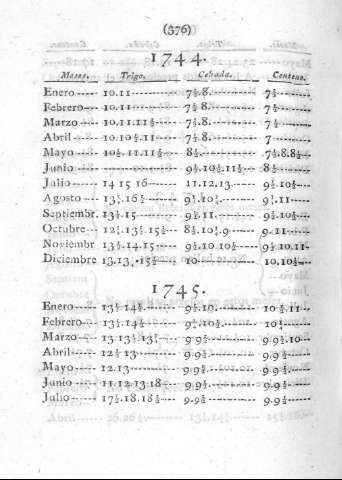 (376)
1744.
Meses. Trigo. Cebada. Centeno.
Enero 10.11 7½.8. 7½
Febrero 10.11 7½ 8. 7½
Marzo 10.11.11½ 7½.8. 7½
Abril 10.10½.11 7½.8. 7
Mayo 10½.11.11½ 8½. 7½.8.8½
Junio 9½.10½.11½ 8½
Julio 14 15 16 11.12.13 9½.10½
Agosto
Septiembr. 13½.15 9½.11. 9½.10½
Octubre
Noviembr 13½.14.15 9½.10.10½ 9½.10.11
Diciembre 10 10.10½
1745.
Enero 13½.14½. 9½.10. 10½.11
Febrero 13½.14½
Marzo 9.9½. 9.9½.10
Abril 12½.13 9.9½. 9.9½
Mayo 12.13 9.9½. 9.9½
Junio 11.12.13.18 9.9½. 9.9½
Julio 17½.18.18½ 9.9½ 9.9½